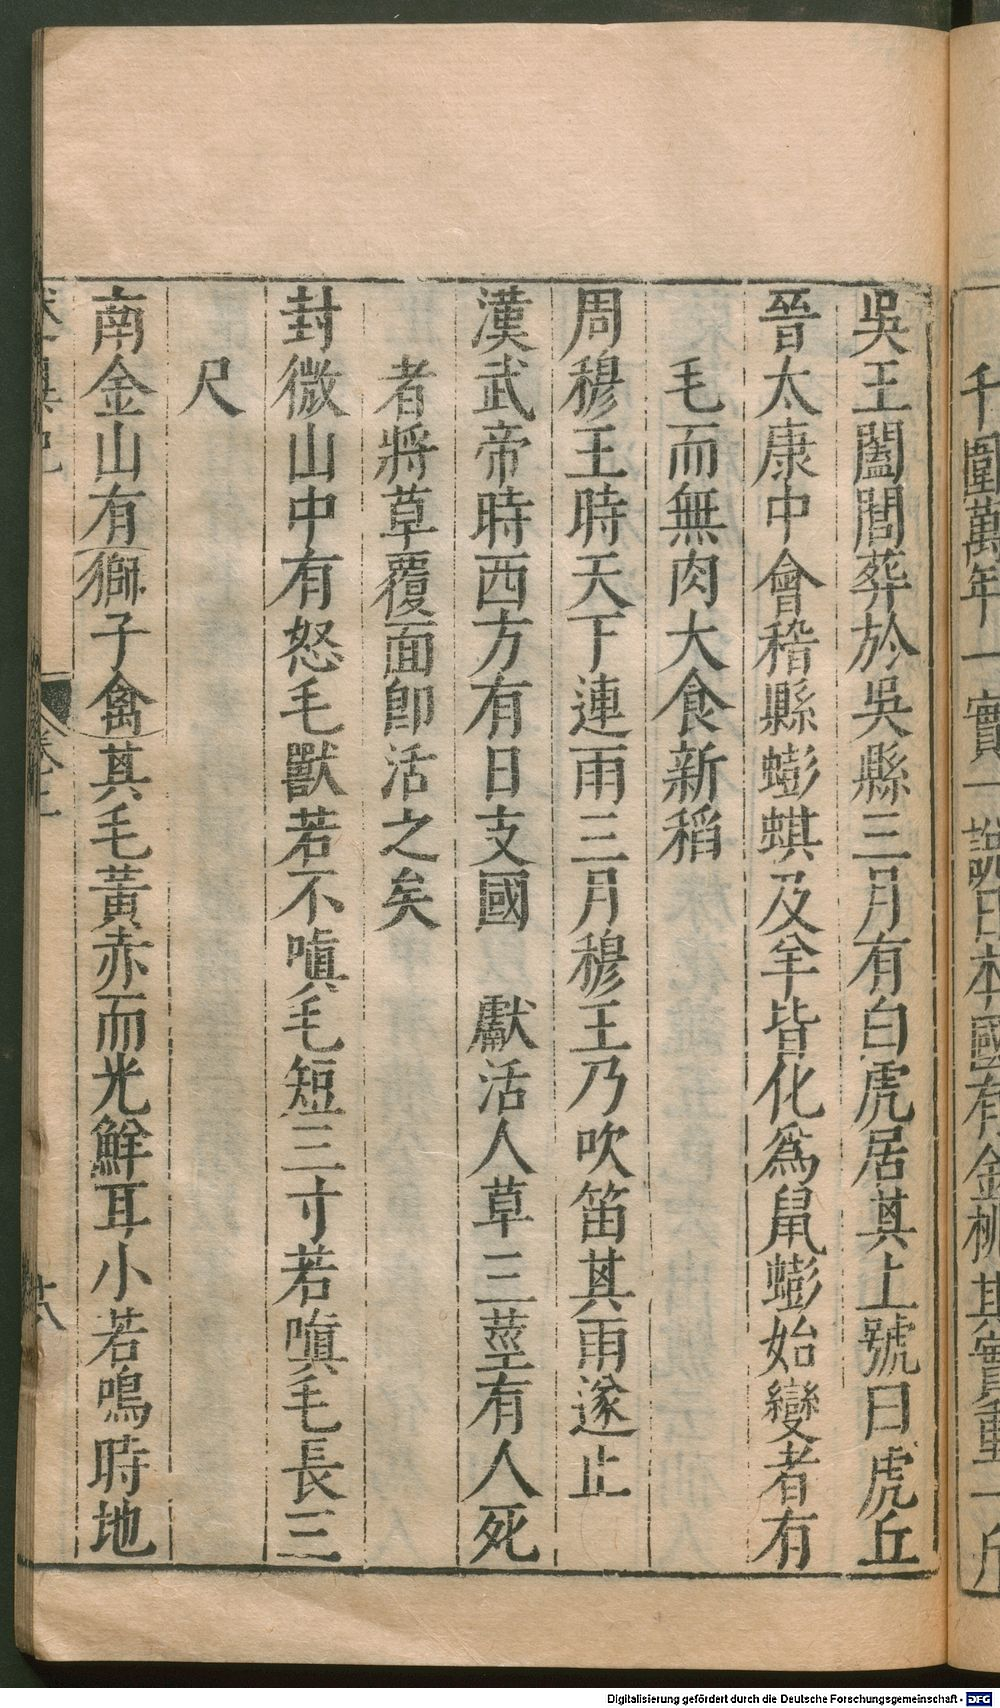 千圍萬年一實一說日本國有金桃其實重一斤
吳王闔閭葬於吳縣三月有白虎居其上號曰虎丘
晉太康中會稽縣蟛蜞及羊皆化爲鼠蟛始變者有
毛而無肉大食新稻
周穆王時天下連雨三月穆王乃吹笛其雨遂止
漢武帝時西方有日支國 獻活人草三莖有人死
者將草覆面卽活之矣
封微山中有怒毛獸若不嗔毛短三寸若嗔毛長三
尺
南金山有獅子禽其毛黃赤而光鮮耳小若鳴時地
卷上
廿八
Digitalisierung gefördert durch die Deutsche Forschungsgemeinschaft - DFG